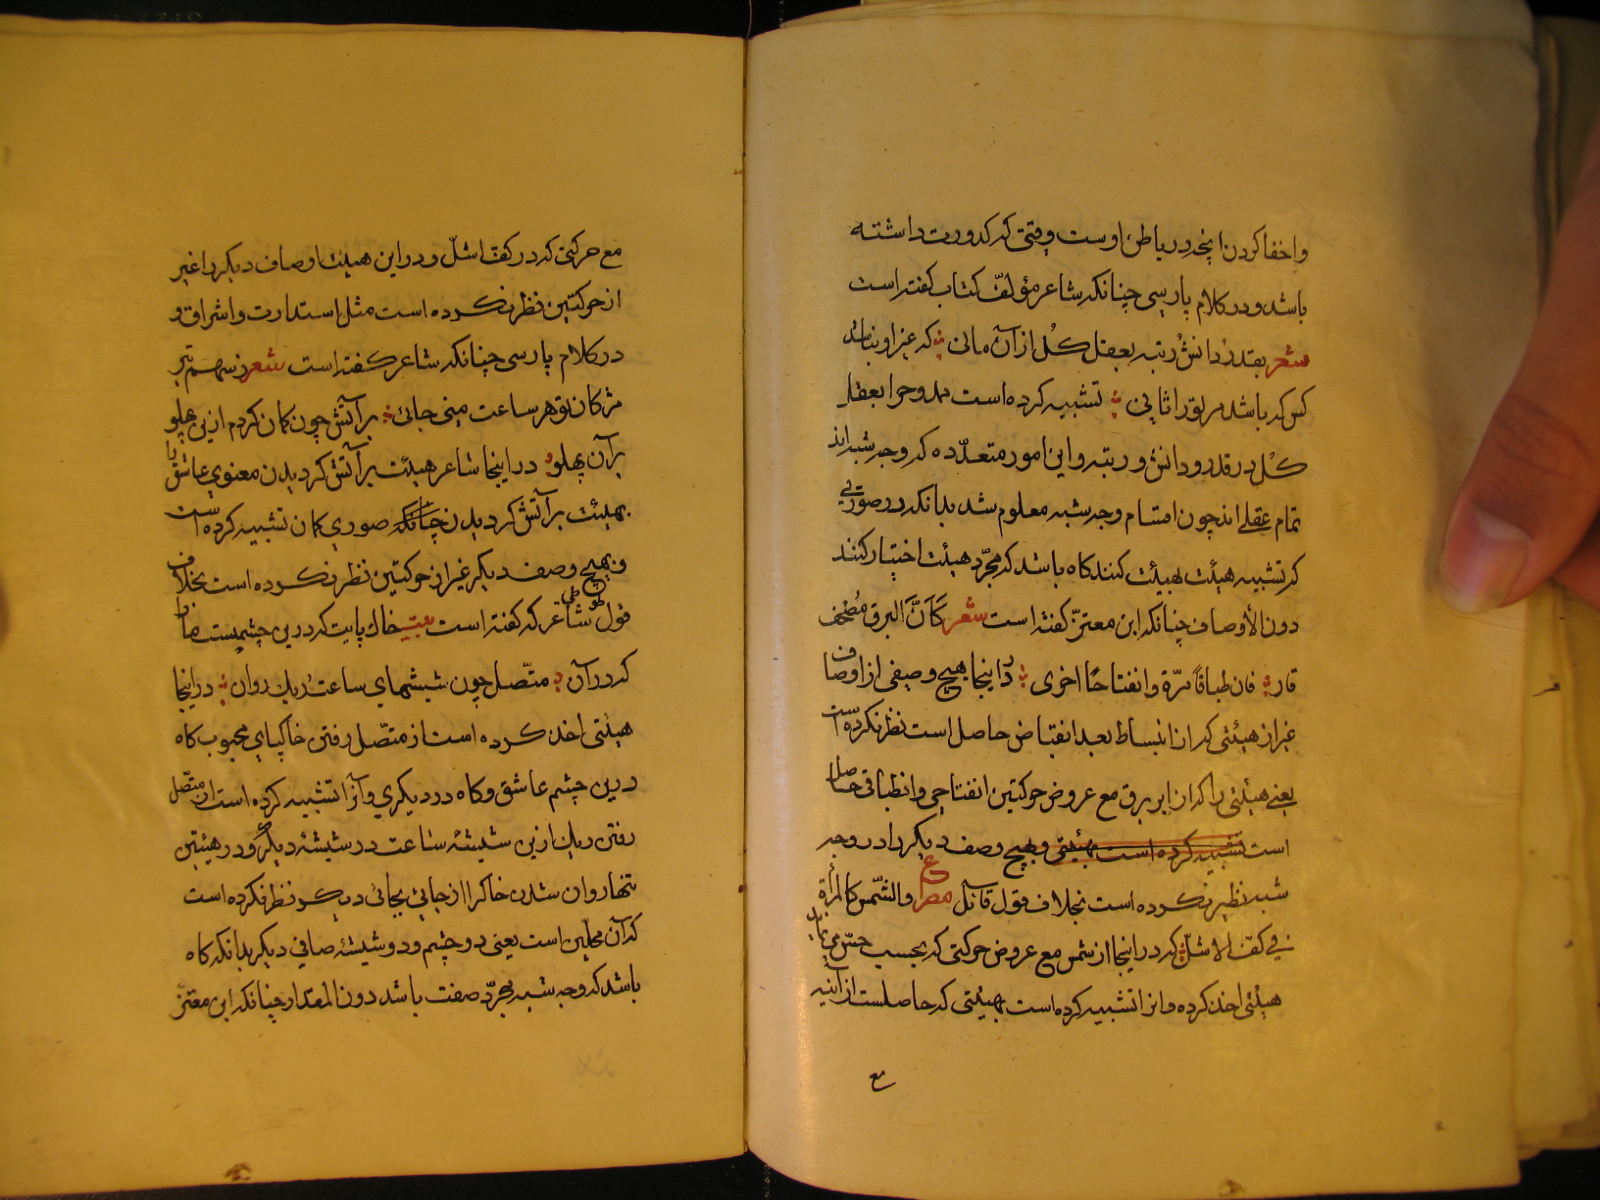 واخفا کردن انچه در باطن اوست وقتی که کدورت داشته
باشد و در کلام پارسی چنانکه شاعر مؤلف کتاب گفته است
شعر بقدر دانش رتبه بعقل کل از آن مانی که غیر او نباشد
کس که باشد مر تورا ثانی تشبیه کرده است ممدوح را بعقل
کل در قدر و دانش و رتبه و این امور متعدّده که وجه شبه اند
تمام عقلی اند چون اقسام وجه شبه معلوم شد بدانکه در صورتی
که تشبیه هیئت بهیئت کنند کاه باشد که مجرّد هیئت اختیار کنند
دون الأوصاف چنانکه ابن معتزّ گفته است شعر کَاَنَّ البرق مُصْحَف
قار فان طباقًا مرّة وانفتاحًا اخری در اینجا هیچ وصفی از اوصاف
غیر از هیئتی که از انبساط بعد انقباض حاصل است نظر نکرده است
یعنی هیئتی را که از ابر برق مع عروض حرکتین انفتاحی و انطباقی حاصل
است تشبیه کرده است بهیئتی و بهیچ وصف دیکر را در وجه
شبه نظیر نکرده است بخلاف قول قائل مصرع والشّمس کالمرأة
فی کفّ الاشلّ که در اینجا از شمس مع عروض حرکتی که بحسب حسّ می نماید
هیئتی اخذ کرده و انرا تشبیه کرده است بهیئتی که حاصلست از آینه
مع
مع حرکتی که در کف اشلّ و در این هیئت اوصاف دیکر را غیر
از حرکتین نظر نکرده است مثل استدارت و اشراق و
در کلام پارسی چنانکه شاعر گفته است شعر ز سهم تیر
مژکان تو هر ساعت منی جانی بر آتش چون کمان کردم ازین پهلو
بر آن پهلو در اینجا شاعر هیئت بر آتش کردیدن معنوی عاشق را
بهیئت بر آتش کردیدن چنانکه صوری کمان تشبیه کرده است
و بهیچ وصف دیکر غیر از حرکتین نظر نکرده است بخلاف
قول شاعر که گفته است بیت خاك پایت که درین چشمست کاه
که در آن متّصل چون شیشهای ساعت ریك روان در اینجا
هیئتی اخذ کرده است از متّصل رفتن خاکپای محبوب کاه
درین چشم عاشق و کاه در دیکری و آنرا تشبیه کرده است از متّصل
رفتن ریك ازین شیشهٔ ساعت در شیشهٔ دیکر و در هیئتین
تنها روان شدن خاك را از جائی بجائی دیکر نظر فکرده است
که آن محلّین است یعنی دو چشم و دو شیشهٔ صافی دیکر بدانکه کاه
باشد که وجه شبه مجرّد صفت باشد دون المقدار چنانکه ابن معتزّ